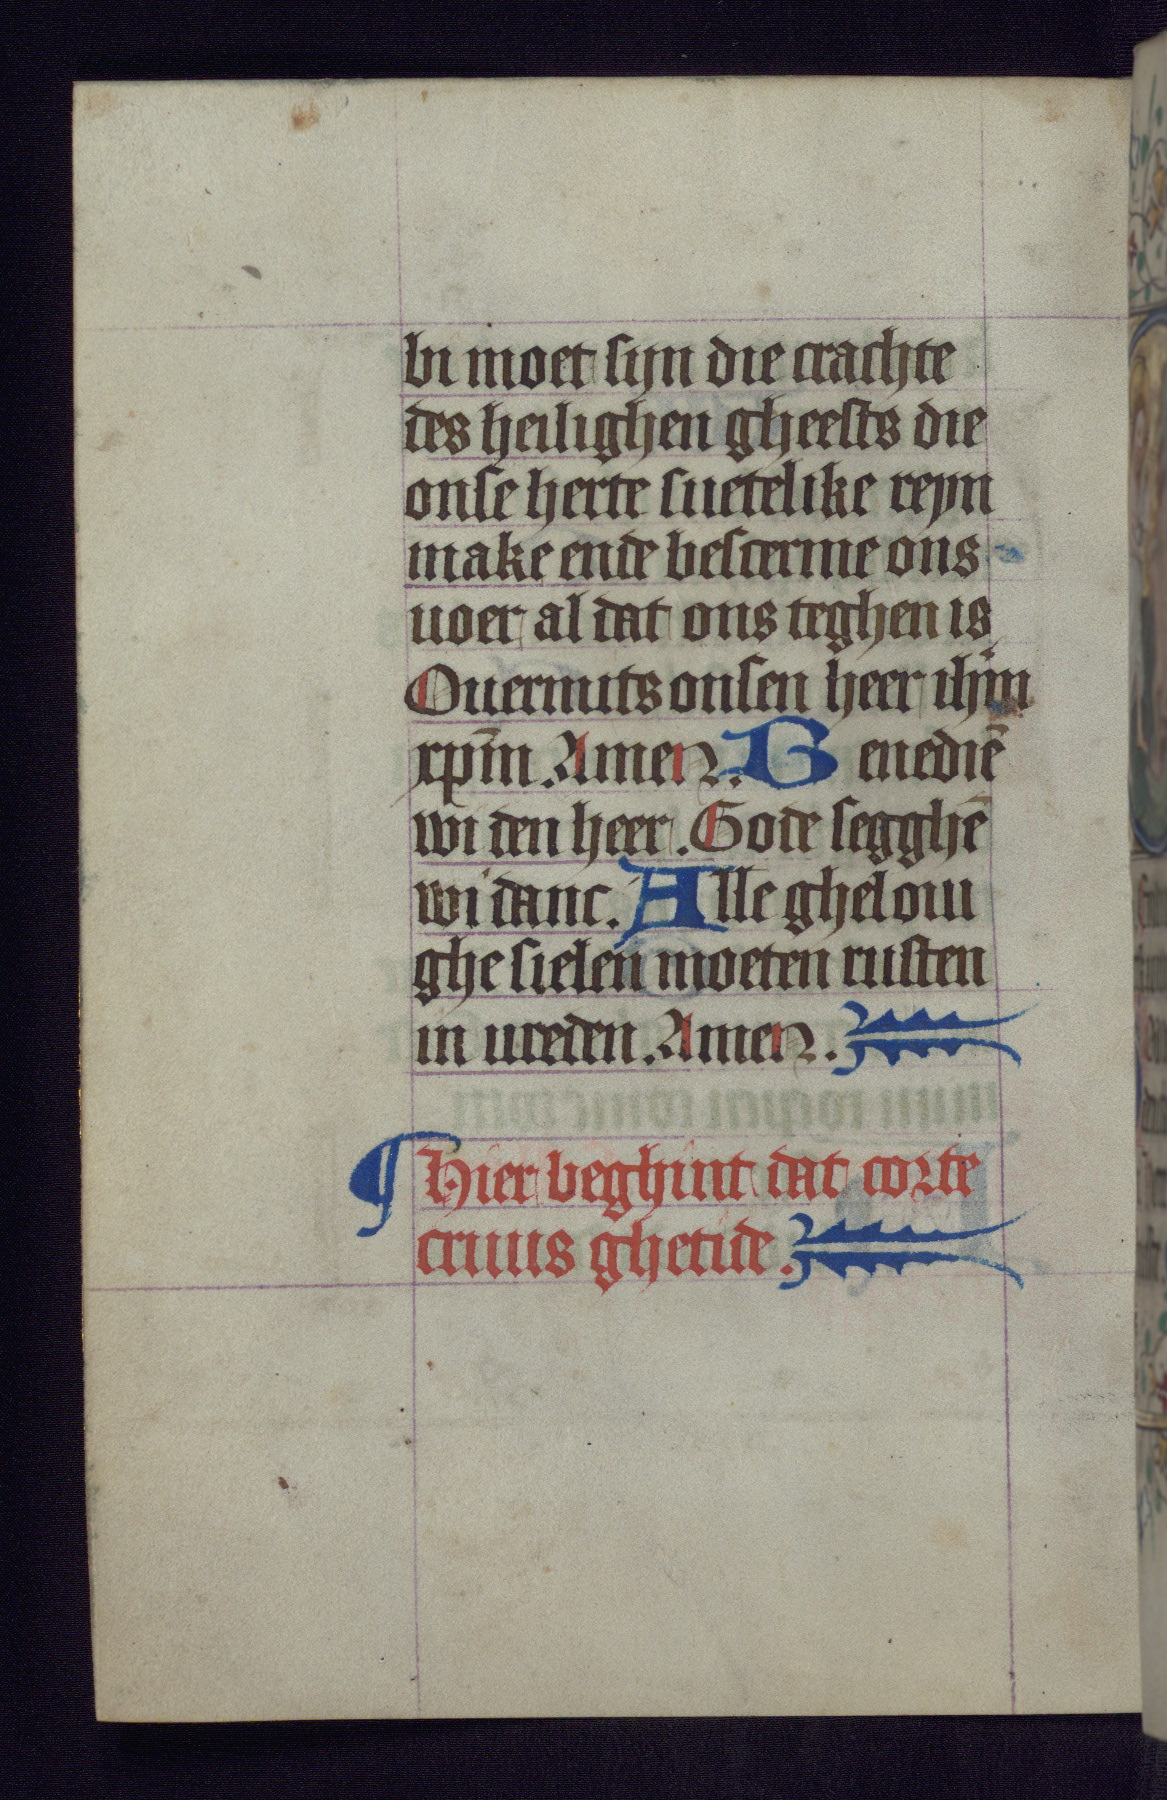 bi moet sijn die crachte
des heilighen gheests die
onse herte suetelike reyn
make ende bescerme ons
uoer al dat ons teghen is
Ouermits onsen heer ihm̄
xpm̄ Amen. Benediē
wi den heer. Gode segghē
wi danc. Alle gheloui
ghe sielen moeten rusten
in ureden. Amen.
¶ Hier beghint dat corte
cruus ghetide.